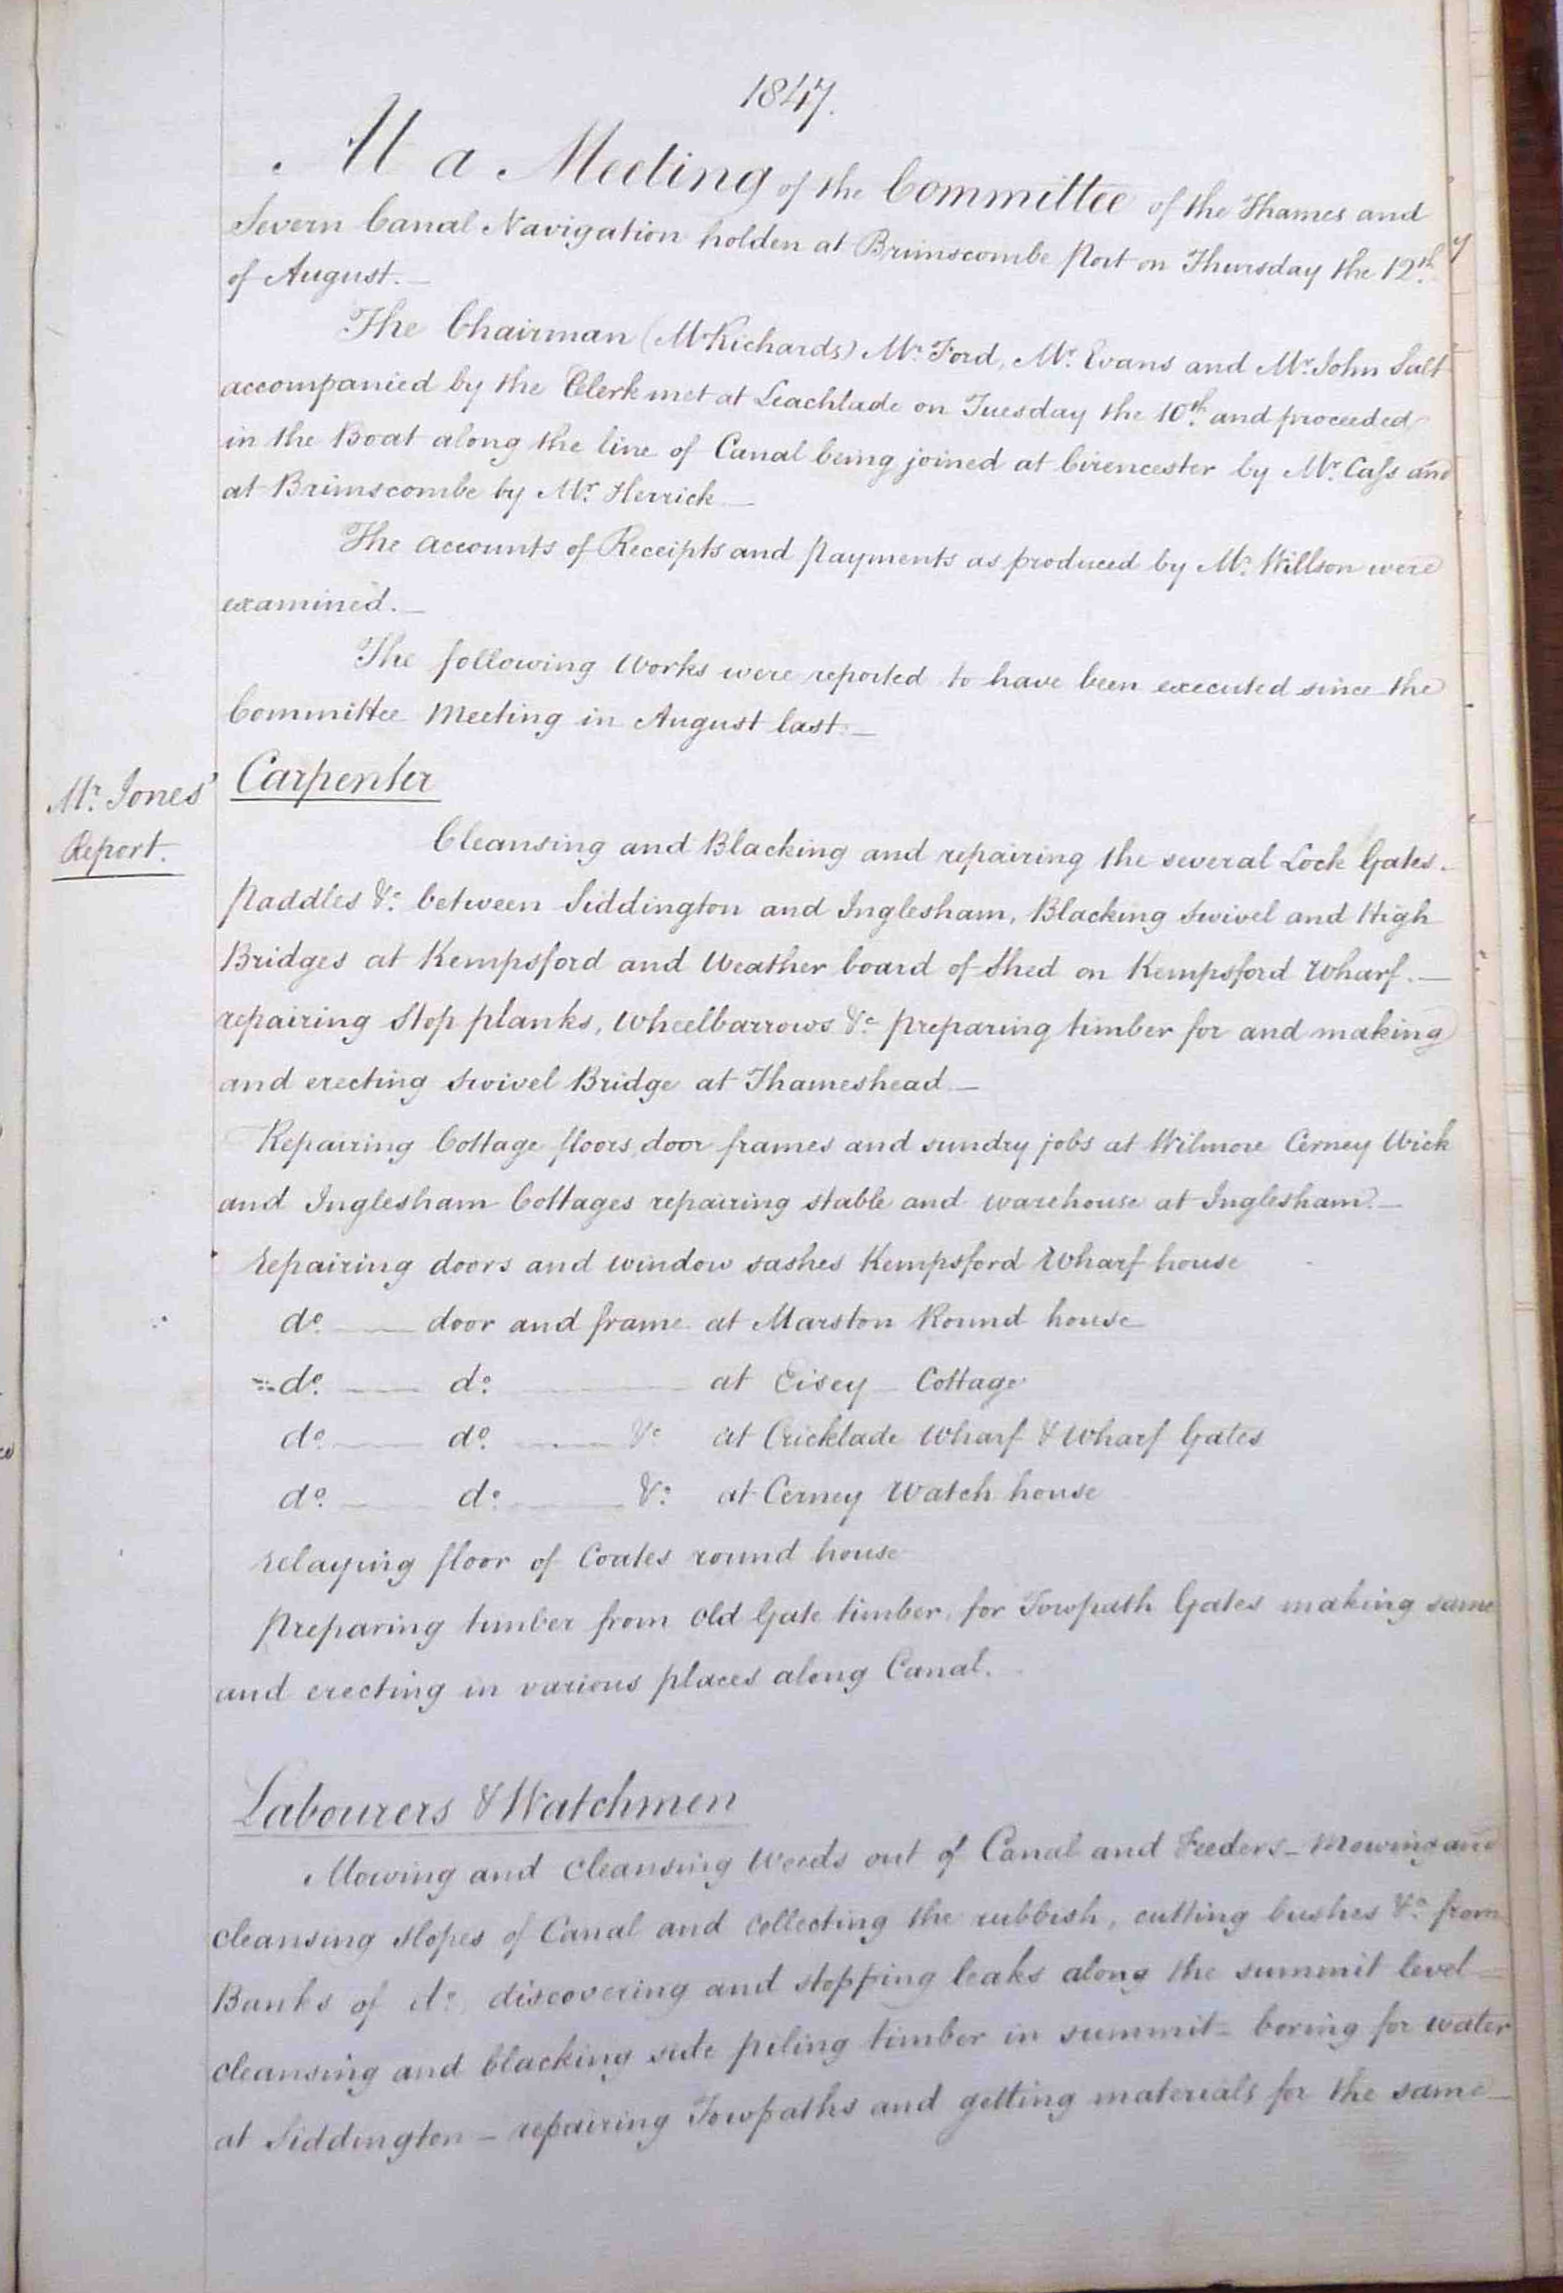 1847.
At a Meeting of the Committee of the Thames and
Severn Canal Navigation holden at Brimscombe Port on Thursday the 12th.
of August. —
The Chairman (Mr Richards) Mr. Ford, Mr. Evans and Mr. John Salt
accompanied by the Clerk met at Leachlade on Tuesday the 10th. and proceeded
in the Boat along the line of Canal being joined at Cirencester by Mr. Cass and
at Brimscombe by Mr. Herrick —
The accounts of Receipts and payments as produced by Mr. Willson were
examined. —
The following Works were reported to have been executed since the
Committee Meeting in August last. —
Mr. Jones'
Report.
Carpenter
Cleansing and Blacking and repairing the several Lock Gates.
paddles &c. between Siddington and Inglesham, Blacking swivel and High
Bridges at Kempsford and Weather board of Shed on Kempsford Wharf. —
repairing Stop planks, Wheelbarrows &c preparing timber for and making
and erecting swivel Bridge at Thameshead —
Repairing Cottage floors, door frames and sundry jobs at Wilmore Cerney Wick
and Inglesham Cottages repairing stable and warehouse at Inglesham. —
repairing doors and window sashes Kempsford Wharf house
do. — door and frame at Marston Round house
do. — do. — at Eisey Cottage
do. — do. — &c at Cricklade Wharf & Wharf Gates
do. — do. — &c. at Cerney Watch house
relaying floor of Coates round house
preparing timber from old Gate timber, for Towpath Gates making same
and erecting in various places along Canal.
Labourers & Watchmen
Mowing and cleansing Weeds out of Canal and Feeders — Mowing and
cleansing slopes of Canal and collecting the rubbish, cutting bushes &c from
Banks of do. discovering and stopping leaks along the summit level —
cleansing and blacking side piling timber in summit — boring for water
at Siddington — repairing Towpaths and getting materials for the same —